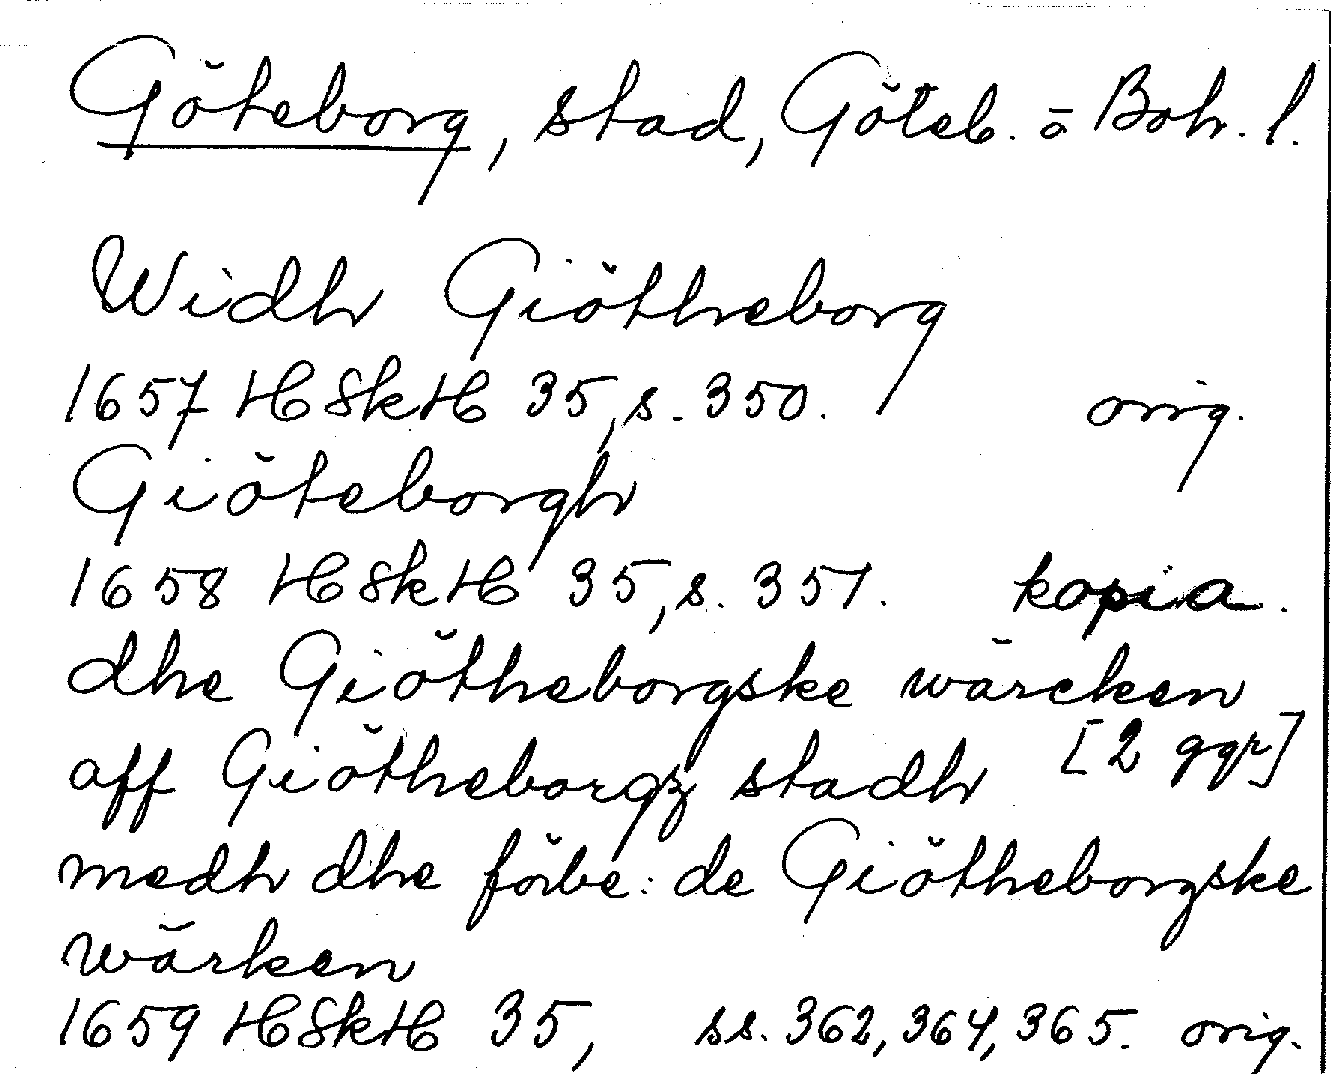 Göteborg, stad, Göteb. o Boh. l.
Widh Giötheborg
1657 HSkH 35, s. 350. orig.
Giöteborgh
1658 HSkH 35, s. 351. kopia.
dhe Giötheborgske wärcken
aff Giötheborgz stadh [2 ggr]
medh dhe förbe: de Giötheborgske
wärken
1659 HSkH 35, ss. 362, 364, 365. orig.